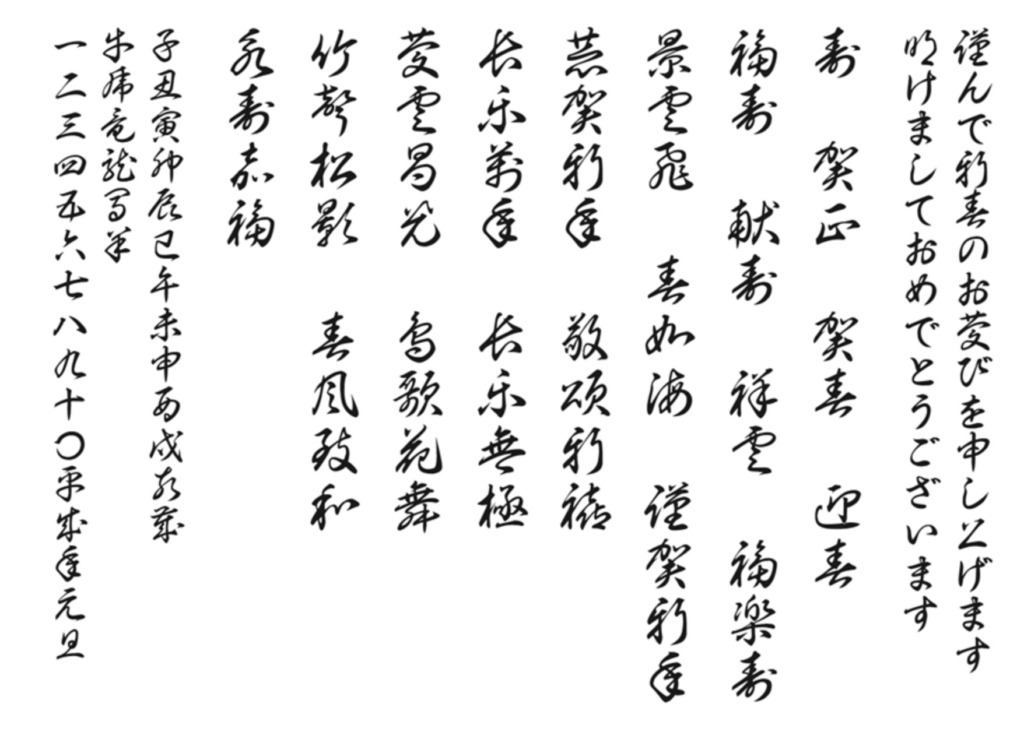 謹んで新春のお慶びを申し上げます
明けましておめでとうございます
寿　賀正　賀春　迎春
福寿　献寿　祥雲　福楽寿
景雲飛　春如海　謹賀新年
恭賀新年　敬頌新禧
長楽萬年　長楽無極
慶雲昌光　鳥歌花舞
竹声松影　春風致和
永寿嘉福
子丑寅卯辰巳午未申酉戌亥歳
牛虎竜龍馬羊
一二三四五六七八九十〇平成年元旦